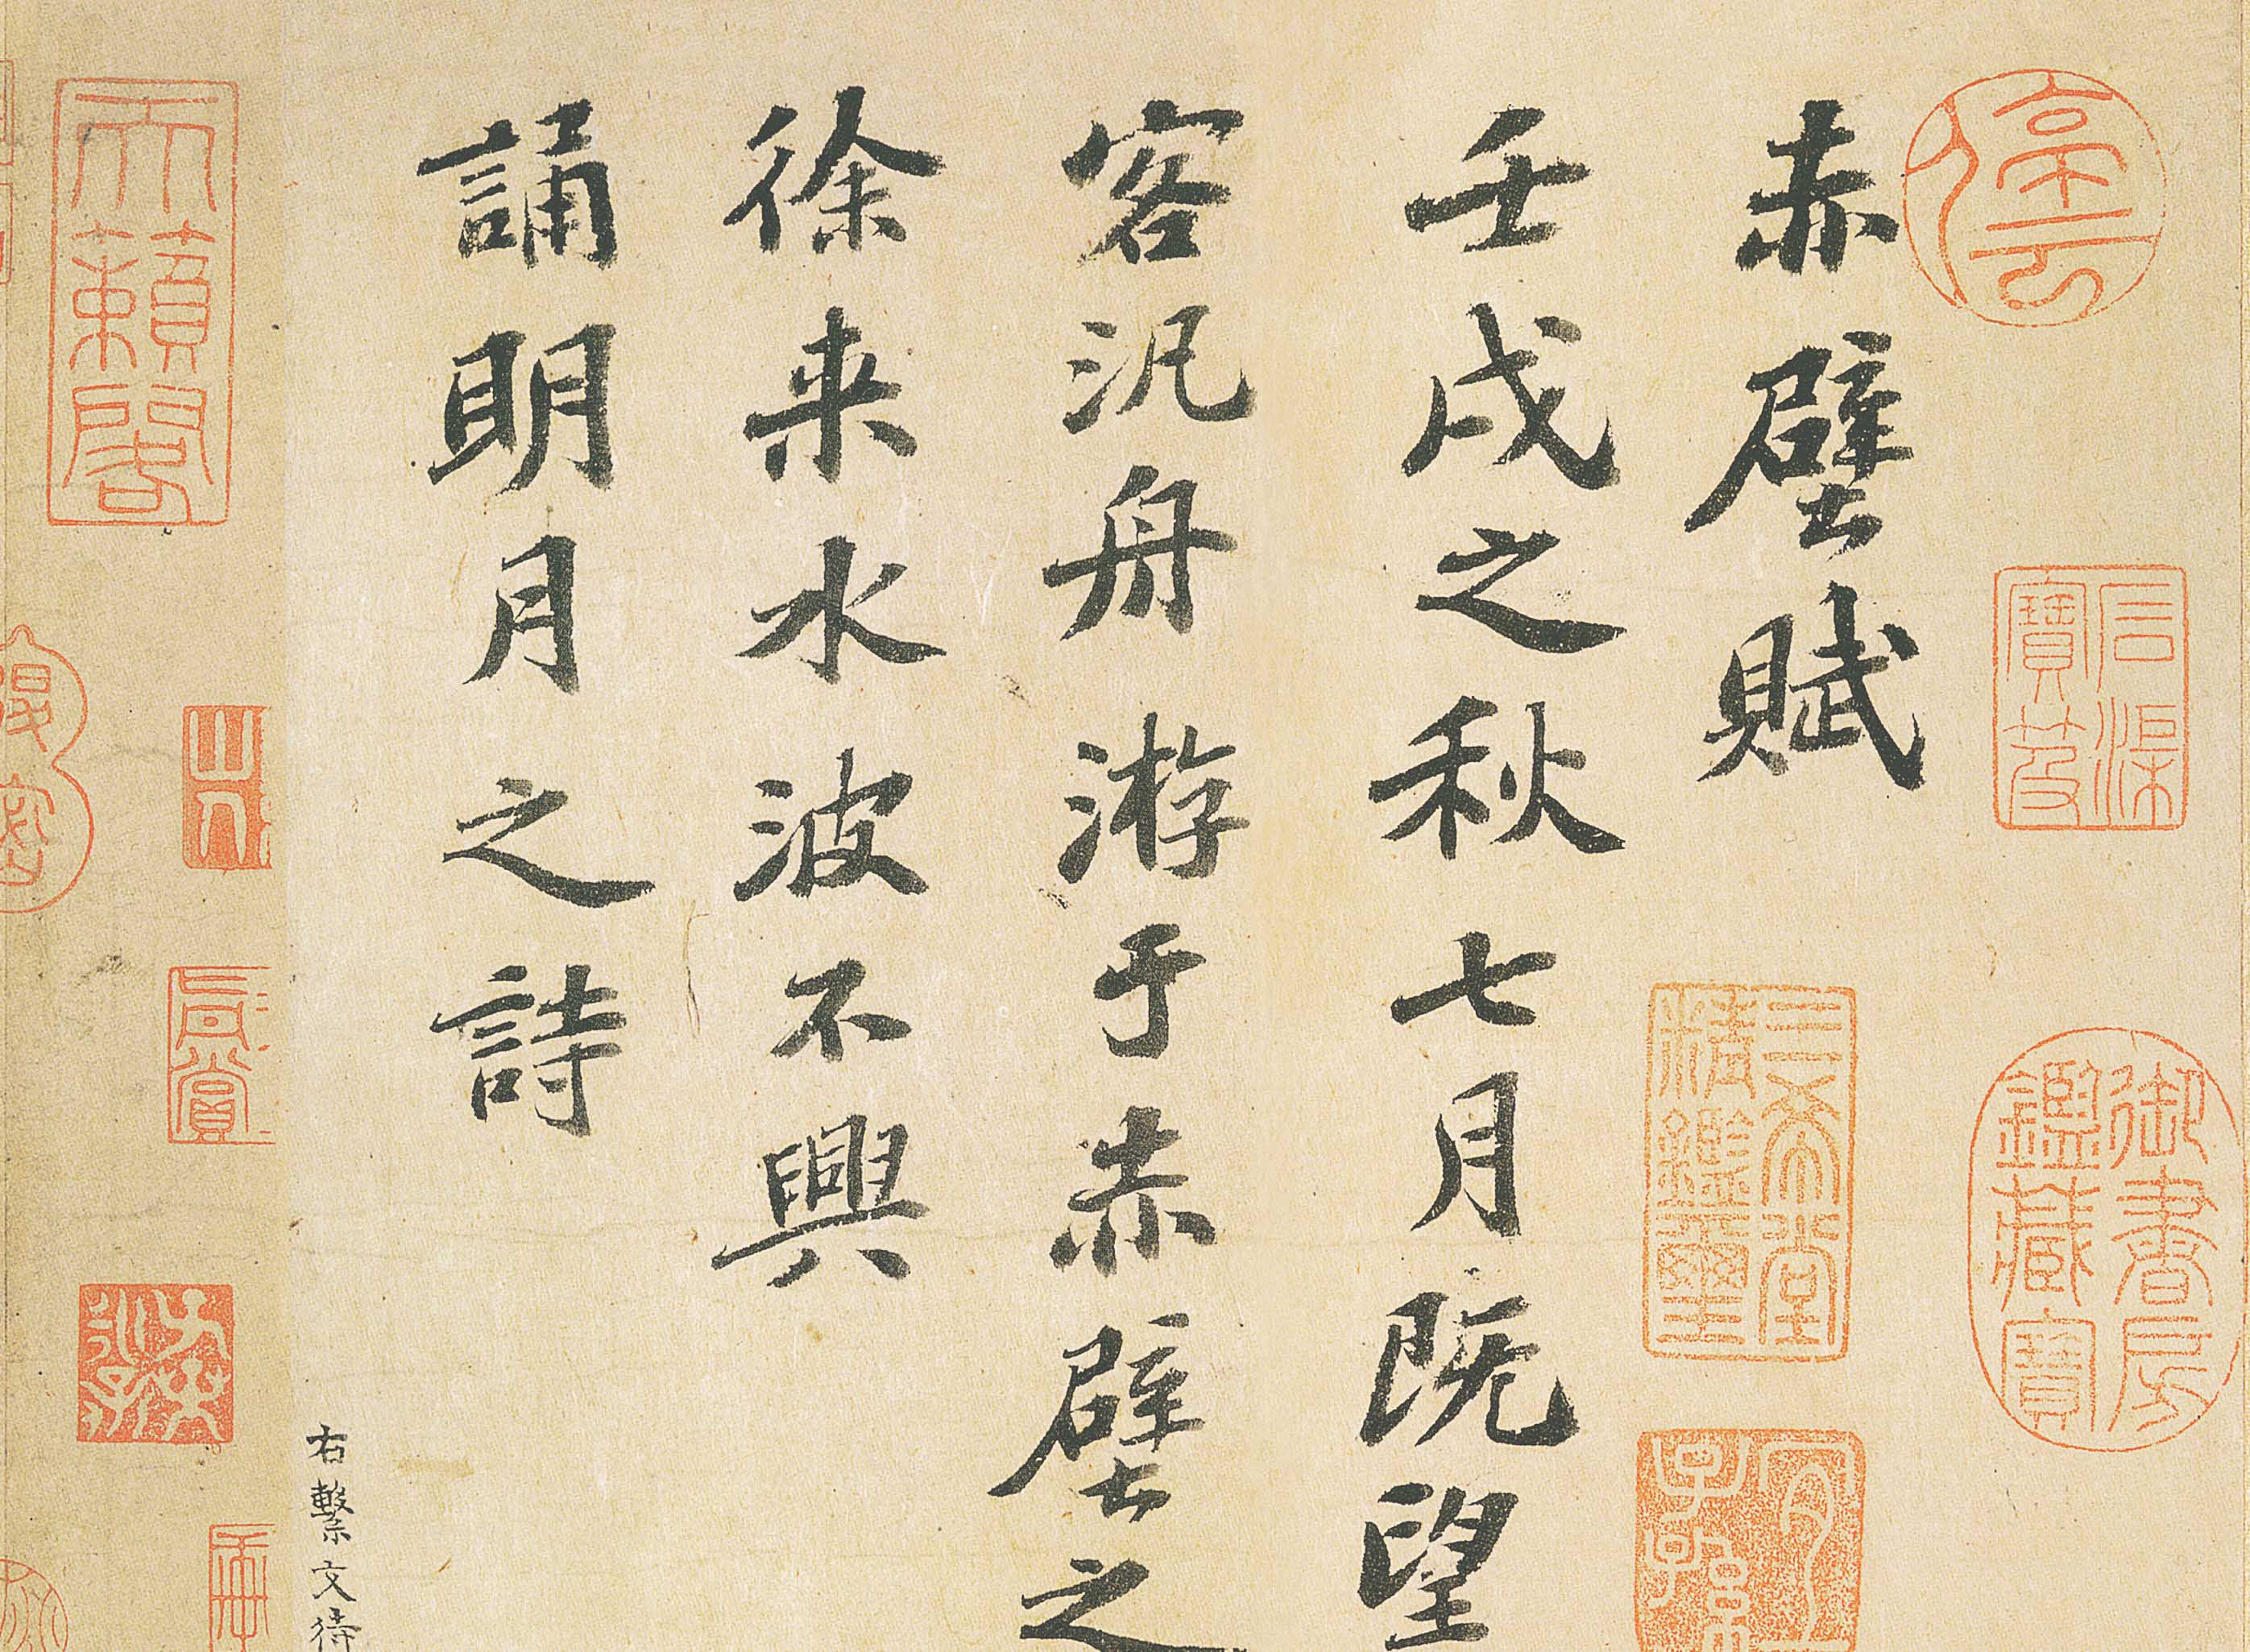 赤壁賦
壬戌之秋七月既望
客汎舟游于赤壁之
徐来水波不興
誦明月之詩
右繫文待
停雲
石渠寶笈
御書房鑑藏寶
三希堂精鑑璽
宜子孫
天籟閣